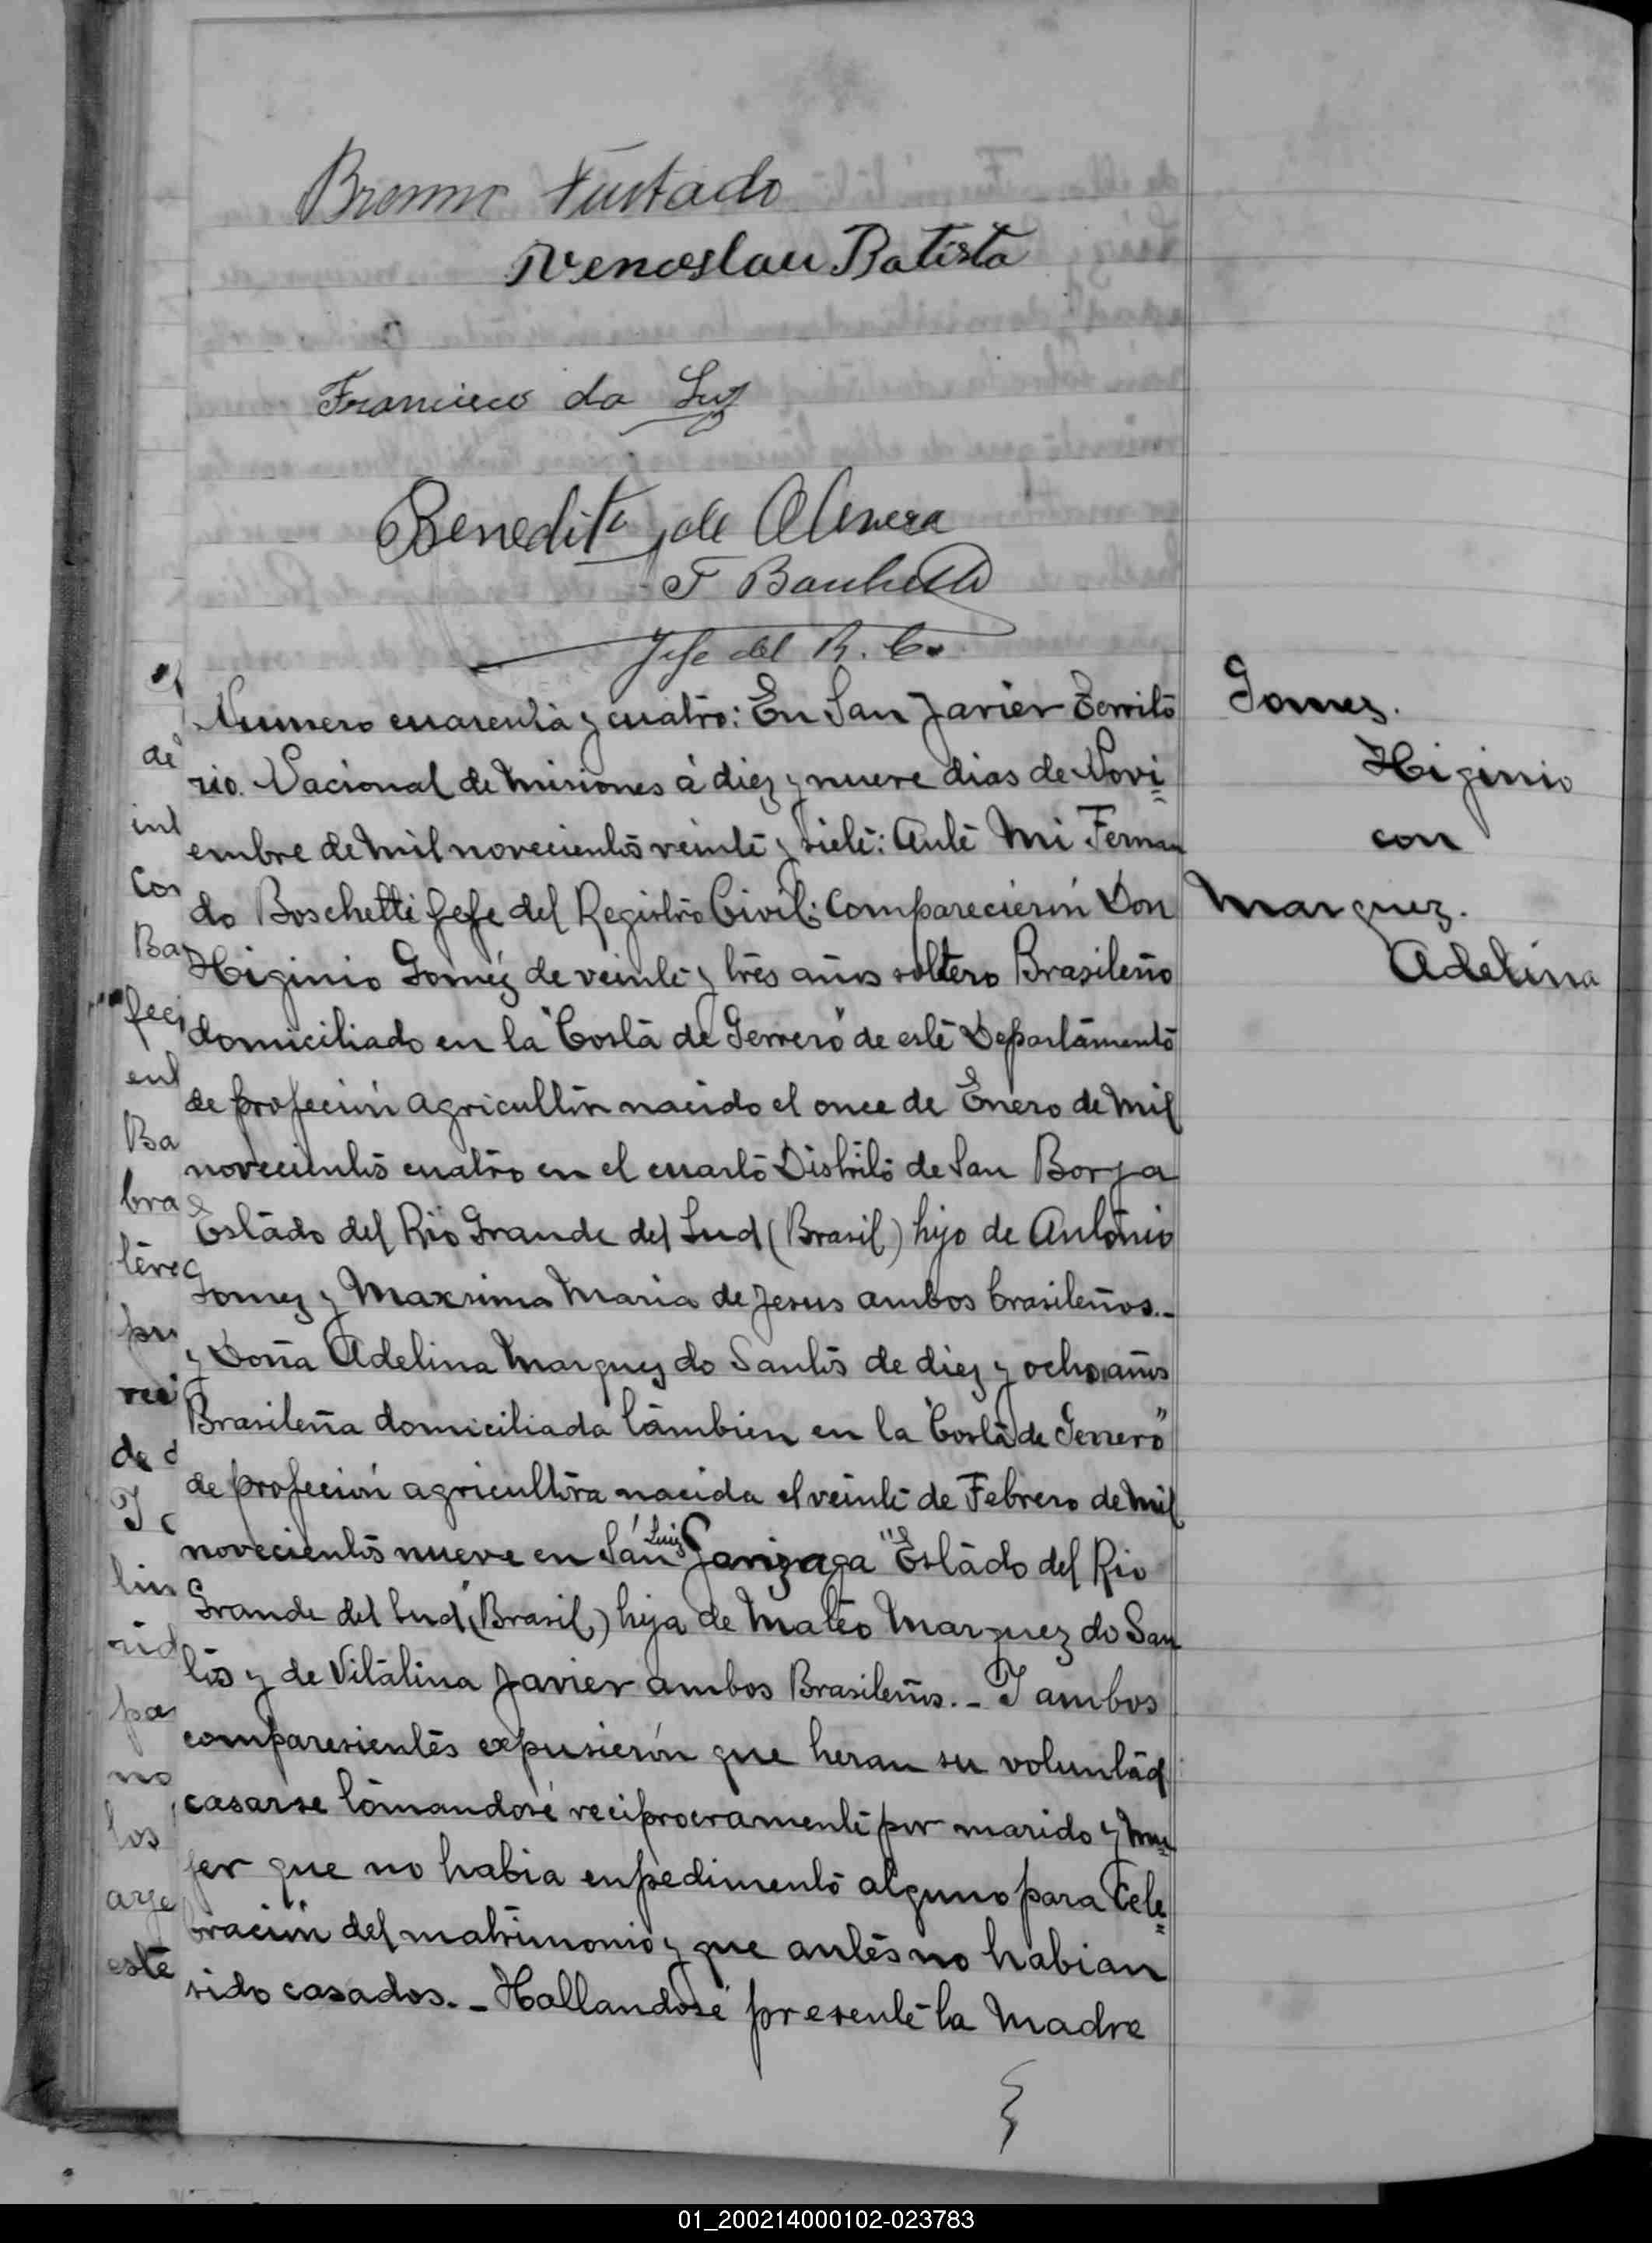 Furtado
Wenceslau Batista
Francisco da Luz
Benedita de Olivera
F Boschetti
Jefe del R. C.
Numero cuarenta y cuatro: En San Javier Territo
rio. Nacional de Misiones á diez y nueve dias de Novi=
embre de Mil novecientos veinte y siete: Ante Mi Fernan
do Boschetti Jefe del Registro Civil: Comparecierón Don
Higinio Goméz de veinte y tres años soltero Brasileño
domiciliado en la "Costa de Gerrero" de este Departamento
de profeción agricultor nacido el once de Enero de Mil
novecientos cuatro en el cuarto Distrito de San Borja
Estado del Rio Grande del Sud (Brasil) hijo de Antonio
Gomez y Maxsima Maria de Jesus ambos brasileños.-
y Doña Adelina Marquez do Santos de diez y ocho años
Brasileña domiciliada tambien en la "Costa de Gerrero"
de profeción agricultora nacida el veinte de Febrero de Mil
novecientos nueve en San Luiz Ganzaga "Estado del Rio
Grande del Sud" (Brasil) hija de Mateo Marquez do San
tos y de Vitalina Javier ambos Brasileños.- I ambos
comparesientes expusierón que heran su voluntad
casarse tomandosé reciprocramente por marido y mu=
jer que no habia enpedimento alguno para Cele=
bración del matrimonio y que antes no habian
sido casados.- Hallandosé presente la Madre
Gomez.
Higinio
con
Marquez.
Adelina
de
int
Cor
Ba
feci
ent
Ba
bra
de d
lin
pa
no
los
arge
este
01_200214000102-023783